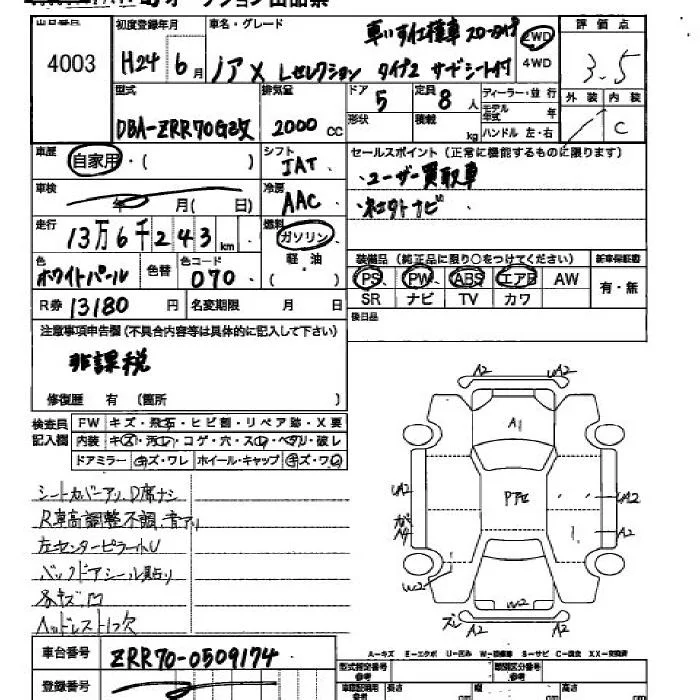 出品番号 初度登録年月 車名・グレード 車いす仕様車 スロープタイプ 2WD 評価点
4003 H24年 6月 ノア X Lセレクション タイプ2 サードシート付 4WD 3.5
型式 排気量 ドア 5 定員 8人 ディーラー・並行 外装 内装
DBA-ZRR70G改 2000 cc 形状 積載 kg モデル年式 年 C
ハンドル 左・右
車歴 自家用・( ) シフト IAT セールスポイント(正常に機能するものに限ります)
・ユーザー買取車
車検 年 月( 日) 冷房 AAC ・社外ナビ
走行 13万6千243km 燃料 ガソリン
軽油
色 ホワイトパール 色替 色コード 070 装備品(純正品に限り○をつけてください) 新車保証書
PS PW ABS エアB AW 有・無
R券 13180円 名変期限 月 日 SR ナビ TV カワ
後日品
注意事項申告欄(不具合内容等は具体的に記入して下さい)
非課税
修復歴 有 (箇所 )
検査員記入欄 FW キズ・飛石・ヒビ割・リペア跡・X要
内装 キズ・汚レ・コゲ・穴・スレ・ベタリ・破レ
ドアミラー キズ・ワレ ホイール・キャップ キズ・ワレ
シートカバーアリ、D席ナシ
R車高調整不調、音アリ
左センターピラー小U
バックドアシール貼り
各キズ凹
ヘッドレスト1ツ欠
A2 UA2
A1
UA2 PTE UA2
ガ A4 1 A2
W2 W2
ズレ A2
A-キズ E-エクボ U-凹み W-補修車 S-サビ C-腐食 XX-交換済
車台番号 ZRR70-0509174 型式指定番号 参考 類別区分番号 参考
登録番号 車庫証明用 参考 長さ cm 幅 cm 高さ cm